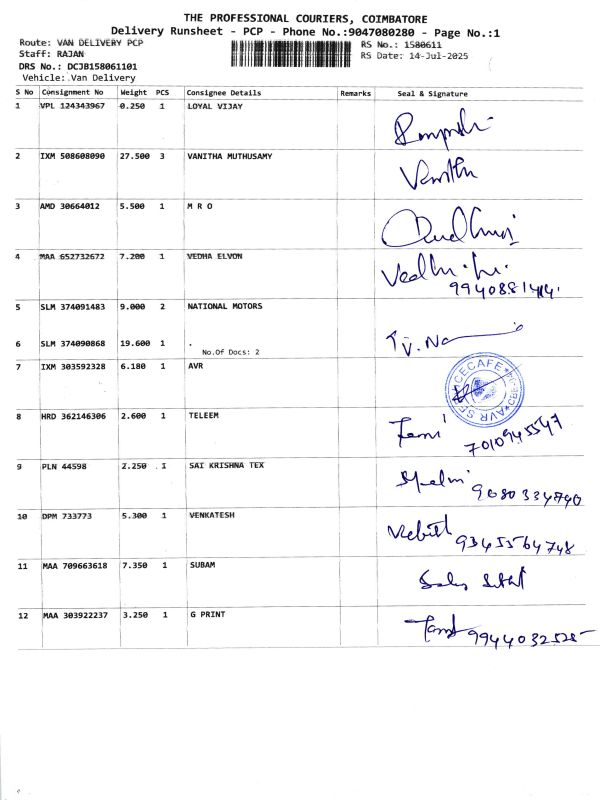 THE PROFESSIONAL COURIERS, COIMBATORE
Delivery Runsheet - PCP - Phone No.:9047080280 - Page No.:1
Route: VAN DELIVERY PCP RS No.: 1580611
Staff: RAJAN RS Date: 14-Jul-2025
DRS No.: DCJB158061101
Vehicle: Van Delivery
S No Consignment No Weight PCS Consignee Details Remarks Seal & Signature
1 VPL 124343967 0.250 1 LOYAL VIJAY
2 IXM 508608090 27.500 3 VANITHA MUTHUSAMY
Vanitha
3 AMD 30664012 5.500 1 M R O
4 MAA 652732672 7.200 1 VEDHA ELVON
5 SLM 374091483 9.000 2 NATIONAL MOTORS
6 SLM 374090868 19.600 1 .
No.Of Docs: 2
7 IXM 303592328 6.180 1 AVR
8 HRD 362146306 2.600 1 TELEEM
7010945547
9 PLN 44598 2.250 1 SAI KRISHNA TEX
9080334740
10 DPM 733773 5.300 1 VENKATESH
9345564748
11 MAA 709663618 7.350 1 SUBAM
12 MAA 303922237 3.250 1 G PRINT
9944032525